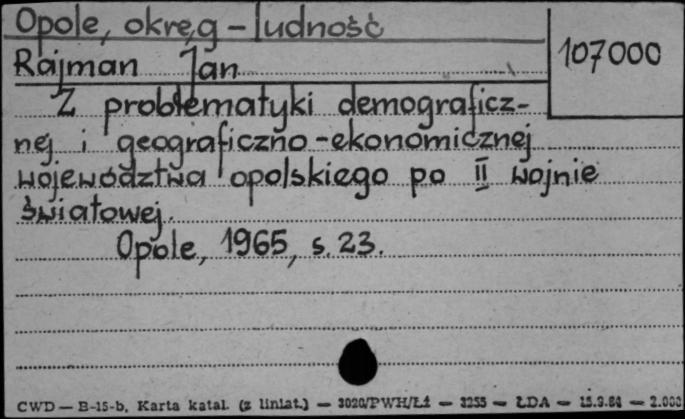 Opole, okręg - ludność
107000
Rajman Jan
Z problematyki demograficz-
nej i geograficzno-ekonomicznej
województwa opolskiego po II wojnie
światowej.
Opole, 1965, s. 23.
CWD — B-15-b, Karta katal. (z liniat.) — 3020/PWH/Ł1 — 3255 — ŁDA — 15.9.61 — 2.000